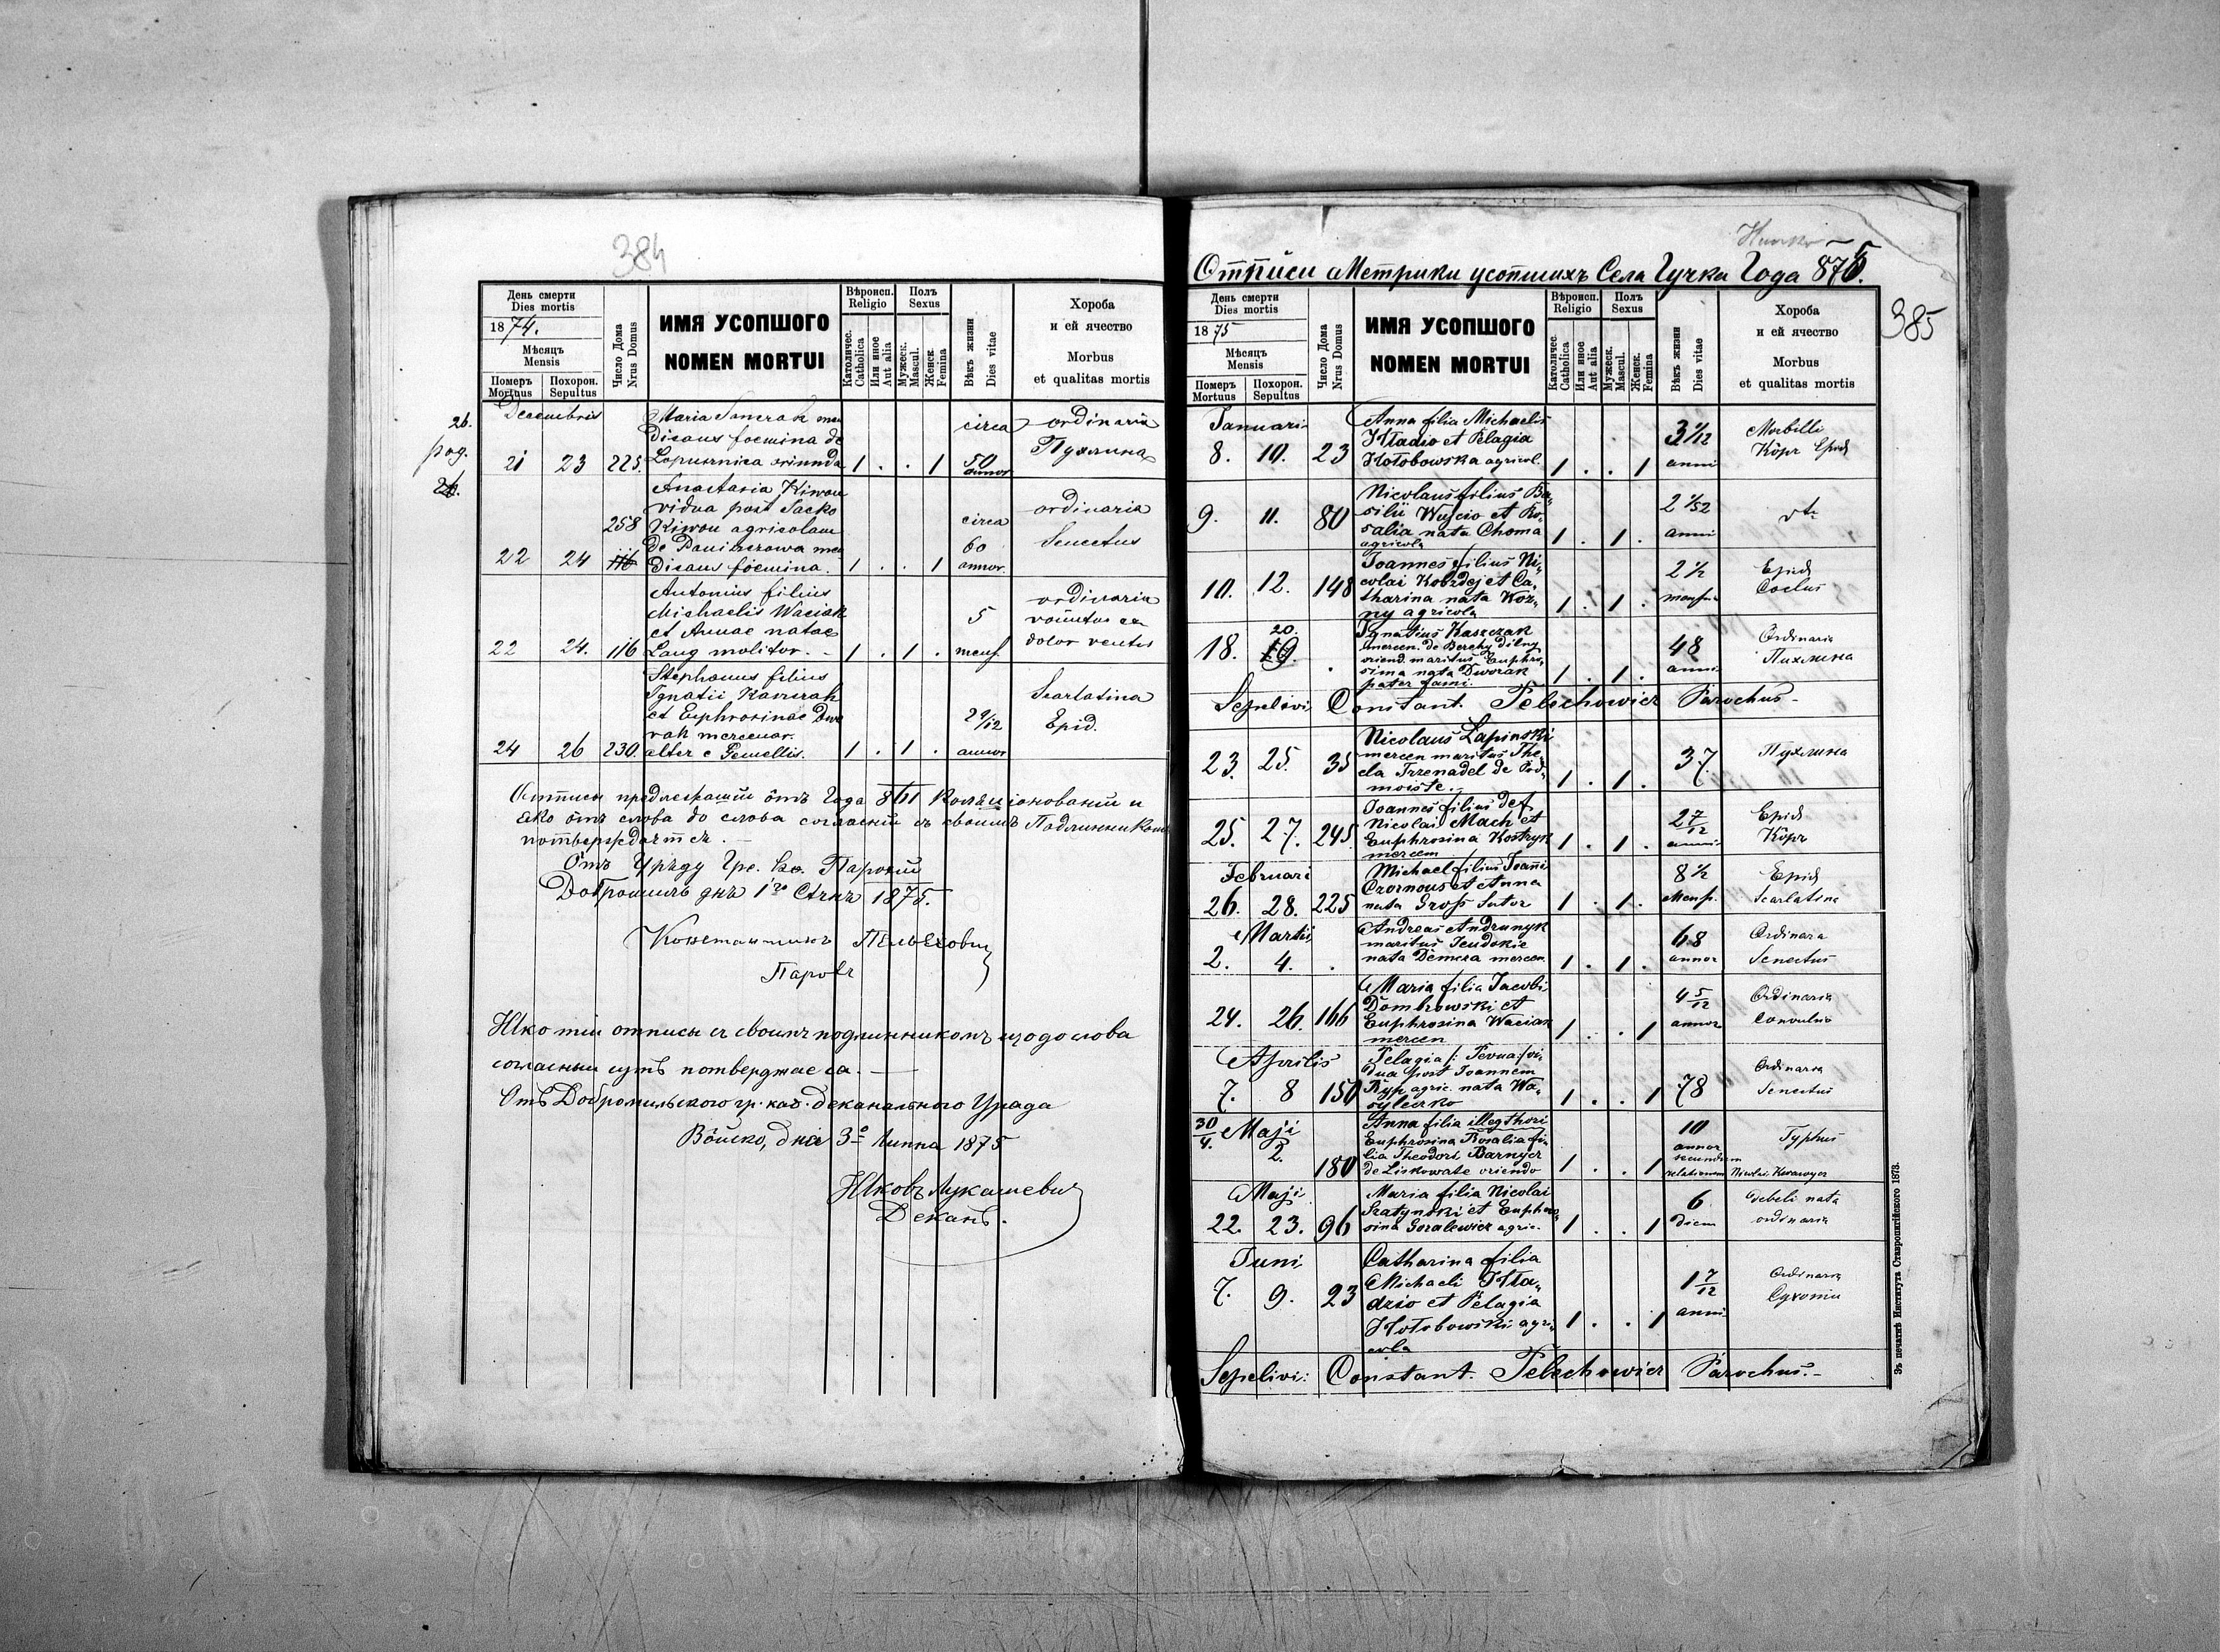 384
День смерти
Dies mortis
1874.
Мѣсяцъ
Mensis
Померъ
Mortuus
Похорон.
Sepultus
Число Дома
Nrus Domus
ИМЯ УСОПШОГО
NOMEN MORTUI
Вѣроисп.
Religio
Католичес.
Catholica
Или иное
Aut alia
Полъ
Sexus
Мужеск.
Mascul.
Женск.
Femina
Вѣкъ жизни
Dies vitae
Хороба
и ей ячество
Morbus
et qualitas mortis
Decembris
21 23 225.
Maria men
dicans foemina de
Lopusznica oriunda
1 . . 1
circa
50
annor
ordinaria
Пухлина
22 24 258
Anastasia Kiwou
vidua post Sacko
Kiwou agricolam
de men
dicans foemina.
1 . . 1
circa
60
annor.
ordinaria
Senectus
22 24. 116
Antonius filius
Michaelis Waciak
et Annae natae
Laug molitor. -
1 . 1 .
5
mens.
ordinaria
dolor ventris
24 26 230.
Stephanus filius
Ignatii
et Euphrosinae Dwo
rak mercenar.
alter e Gemellis.
1 . 1 .
2 9/12
annor
Scarlatina
Epid.
Отписы предлежащіи отъ Года
ѣко отъ слова до слова согласніи съ своимъ Подлинникомъ
потверждаются. -
Отъ Уряду Гре. Ка. Парохіи
Добромиль днѧ 1го Стчнѧ 1875.
Константинъ Пѣлѣховичъ
Парохъ
Яко тіи отписы съ своимъ подлинникомъ що до слова
согласныи суть потверджаеся. -
Отъ Добромильского гр. кат. деканального Уряда
Вôйско, дня 3го Липня 1875
Яковъ Лукашевичъ
Деканъ.
Отписи Метрики усопшихъ Села Гучка Года 875.
385
День смерти
Dies mortis
1875
Мѣсяцъ
Mensis
Померъ
Mortuus
Похорон.
Sepultus
Число Дома
Nrus Domus
ИМЯ УСОПШОГО
NOMEN MORTUI
Вѣроисп.
Religio
Католичес.
Catholica
Или иное
Aut alia
Полъ
Sexus
Мужеск.
Mascul.
Женск.
Femina
Вѣкъ жизни
Dies vitae
Хороба
и ей ячество
Morbus
et qualitas mortis
Januari
8. 10. 23
Anna filia Michaelis
et Pelagia
Hołobowska agricol.
1 . . 1
3 1/12
anni
Morbilli
Kôpr Epid
9. 11. 80
Nicolaus filius Ba-
silii Wujcio et Ro-
salia nata Choma
agricola
1 . 1 .
2 1/52
anni
10. 12. 148
Joannes filius Ni-
colai Kobzdej et Ca-
tharina nata Koz-
ny agricola
1 . 1 .
2 1/2
Epid
Coclus
18. 20.
Ignatius Kaszczak
mercen. de
oriend. maritus Euphro-
sima nata Dworak
pater fami.
1 . 1 .
48
anni
Ordinaria
Пухлина
Sepelivi Constant. Pelechowicz Parochus -
23. 25. 35
Nicolaus Łapinski
mercen maritus The-
cla de Pod-
moiste. -
1 . 1 .
37.
Пухлина
25. 27. 245.
Joannes filius def
Nicolai Mach et
Euphrosina Kostryk
mercen
1 . 1 .
2 7/12
anni
Epid
Kôpr
Februari
26. 28. 225
Michael filius Joanni
Czornous et Anna
nata Gross Sutor
1 . 1 .
8 1/2
Mensi.
Epid
Scarlatina
Martii
2. 4. .
Andreas Andrunyk
maritus Jeudokie
nata mercen
1 . 1 .
68
annor
Ordinara
Senectus
24. 26. 166
Maria filia Jacobi
Dombrowski et
Euphrosina Waciak
mercen
1 . . 1
4 5/12
annor
Ordinaria
Convulsio
Aprilis
7. 8 150
Pelagia vi-
dua post Joannem
Ryp agric. nata Wa-
sylczko
1 . . 1
78
Ordinaria
Senectus
30/4. Maji
2.
180
Anna filia illegthori
Euphrosina Rosalia fi-
lia Theodori Barnycz
de Liskowate oriendo
1 . . 1
10
annor
secundum
relationem Nicolai
Typhus
Maji
22. 23. 96
Maria filia Nicolai
et Euphro-
sina Goralewicz agric.
1 . . 1
6
diem
debeli nata
ordinaria
Juni
7. 9. 23
Catharina filia
Michaeli
dzio et Pelagia
Hołobowski agri-
cola
1 . . 1
1 7/12
anni
Ordinaria
Сухоти
Sepelivi: Constant. Pelechowicz Parochus. -
Зъ печатнѣ Института Ставропигійского 1873.